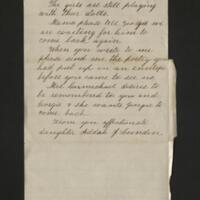 The girls are still playing
with their dolls.
Mama please tell Georgie we
are waiting for him to
come back again.
When you write to me
please send me the poetry you
had put up in an envelope
before you came to see us
Mrs. Carmichael desires to
be remembered to you and
Georgie & she wants Georgie to
come back.
From your affectionate
daughter Addah